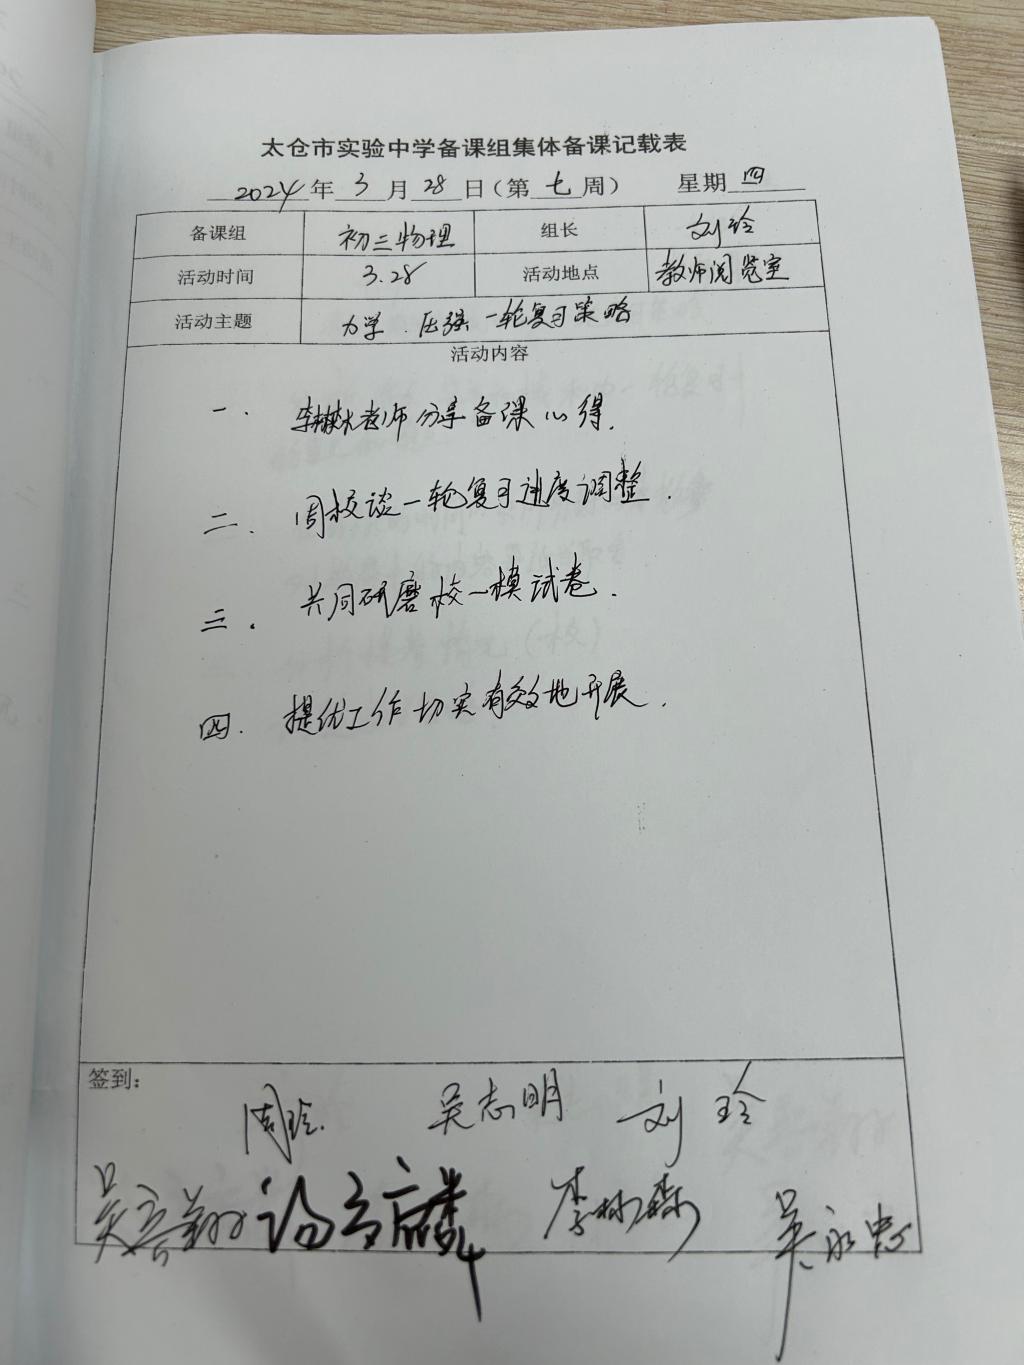 太仓市实验中学备课组集体备课记载表
2024年 3 月 28 日（第 七 周） 星期 四
备课组 初三物理 组长 刘玲
活动时间 3.28 活动地点 教师阅览室
活动主题 力学.压强 一轮复习策略
活动内容
一. 老师分享备课心得.
二. 周校谈一轮复习进度调整.
三. 共同研磨校一模试卷.
四. 提优工作切实有效地开展.
签到:
吴志明 刘玲
李林森 吴永忠